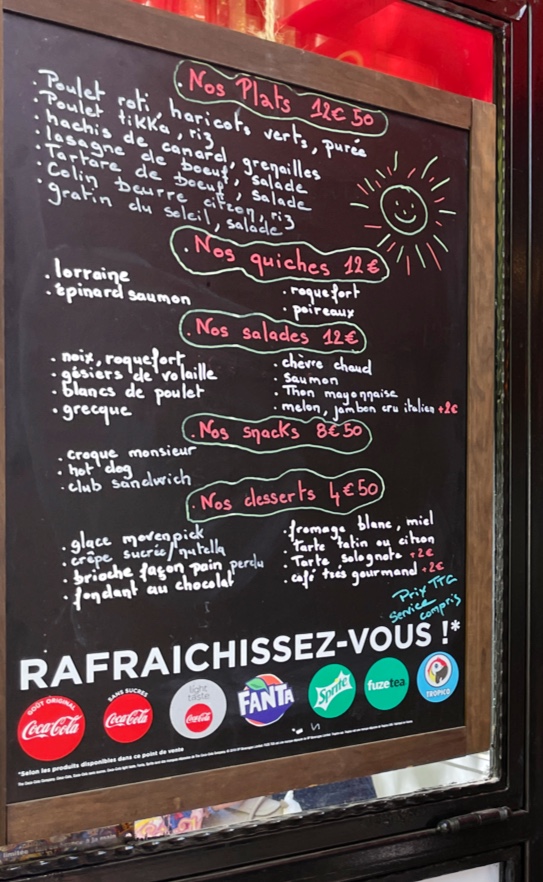 Nos Plats 12€50
• Poulet roti, haricots verts, purée
• Poulet tikka, riz
• hachis de canard, grenailles
• lasagne de boeuf, salade
• Tartare de boeuf, salade
• Colin beurre citron, riz
• gratin du soleil, salade
Nos quiches 12€
• lorraine
• épinard saumon
• roquefort
• poireaux
Nos salades 12€
• noix, roquefort
• gésiers de volaille
• blancs de poulet
• grecque
• chèvre chaud
• saumon
• Thon mayonnaise
• melon, jambon cru italien +2€
Nos snacks 8€50
• croque monsieur
• hot dog
• club sandwich
Nos desserts 4€50
• glace movenpick
• crêpe sucrée/nutella
• brioche façon pain perdu
• fondant au chocolat
• fromage blanc, miel
• Tarte tatin ou citron
• Tarte solognote +2€
• café très gourmand +2€
Prix TTC
Service compris
RAFRAICHISSEZ-VOUS !*
GOÛT ORIGINAL
Coca-Cola
SANS SUCRES
Coca-Cola
light taste
Coca-Cola
FANTA
Sprite
fuzetea
TROPICO
*Selon les produits disponibles dans ce point de vente